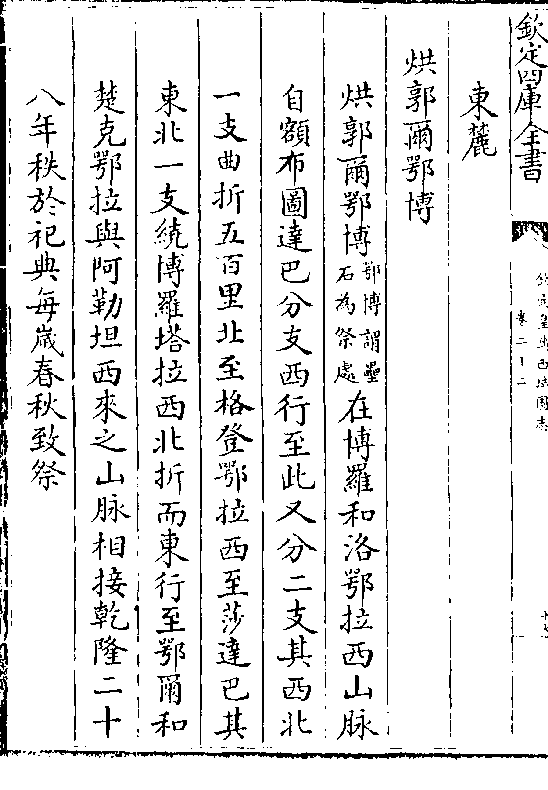 欽定四庫全書
欽定皇輿西域圖志
卷二十二
東麓
烘郭爾鄂博
烘郭爾鄂博鄂博謂壘石為祭處在博羅和洛鄂拉西山脈
自額布圖達巴分支西行至此又分二支其西北
一支曲折五百里北至格登鄂拉西至莎達巴其
東北一支繞博羅塔拉西北折而東行至鄂爾和
楚克鄂拉與阿勒坦西來之山脈相接乾隆二十
八年秩於祀典每歲春秋致祭